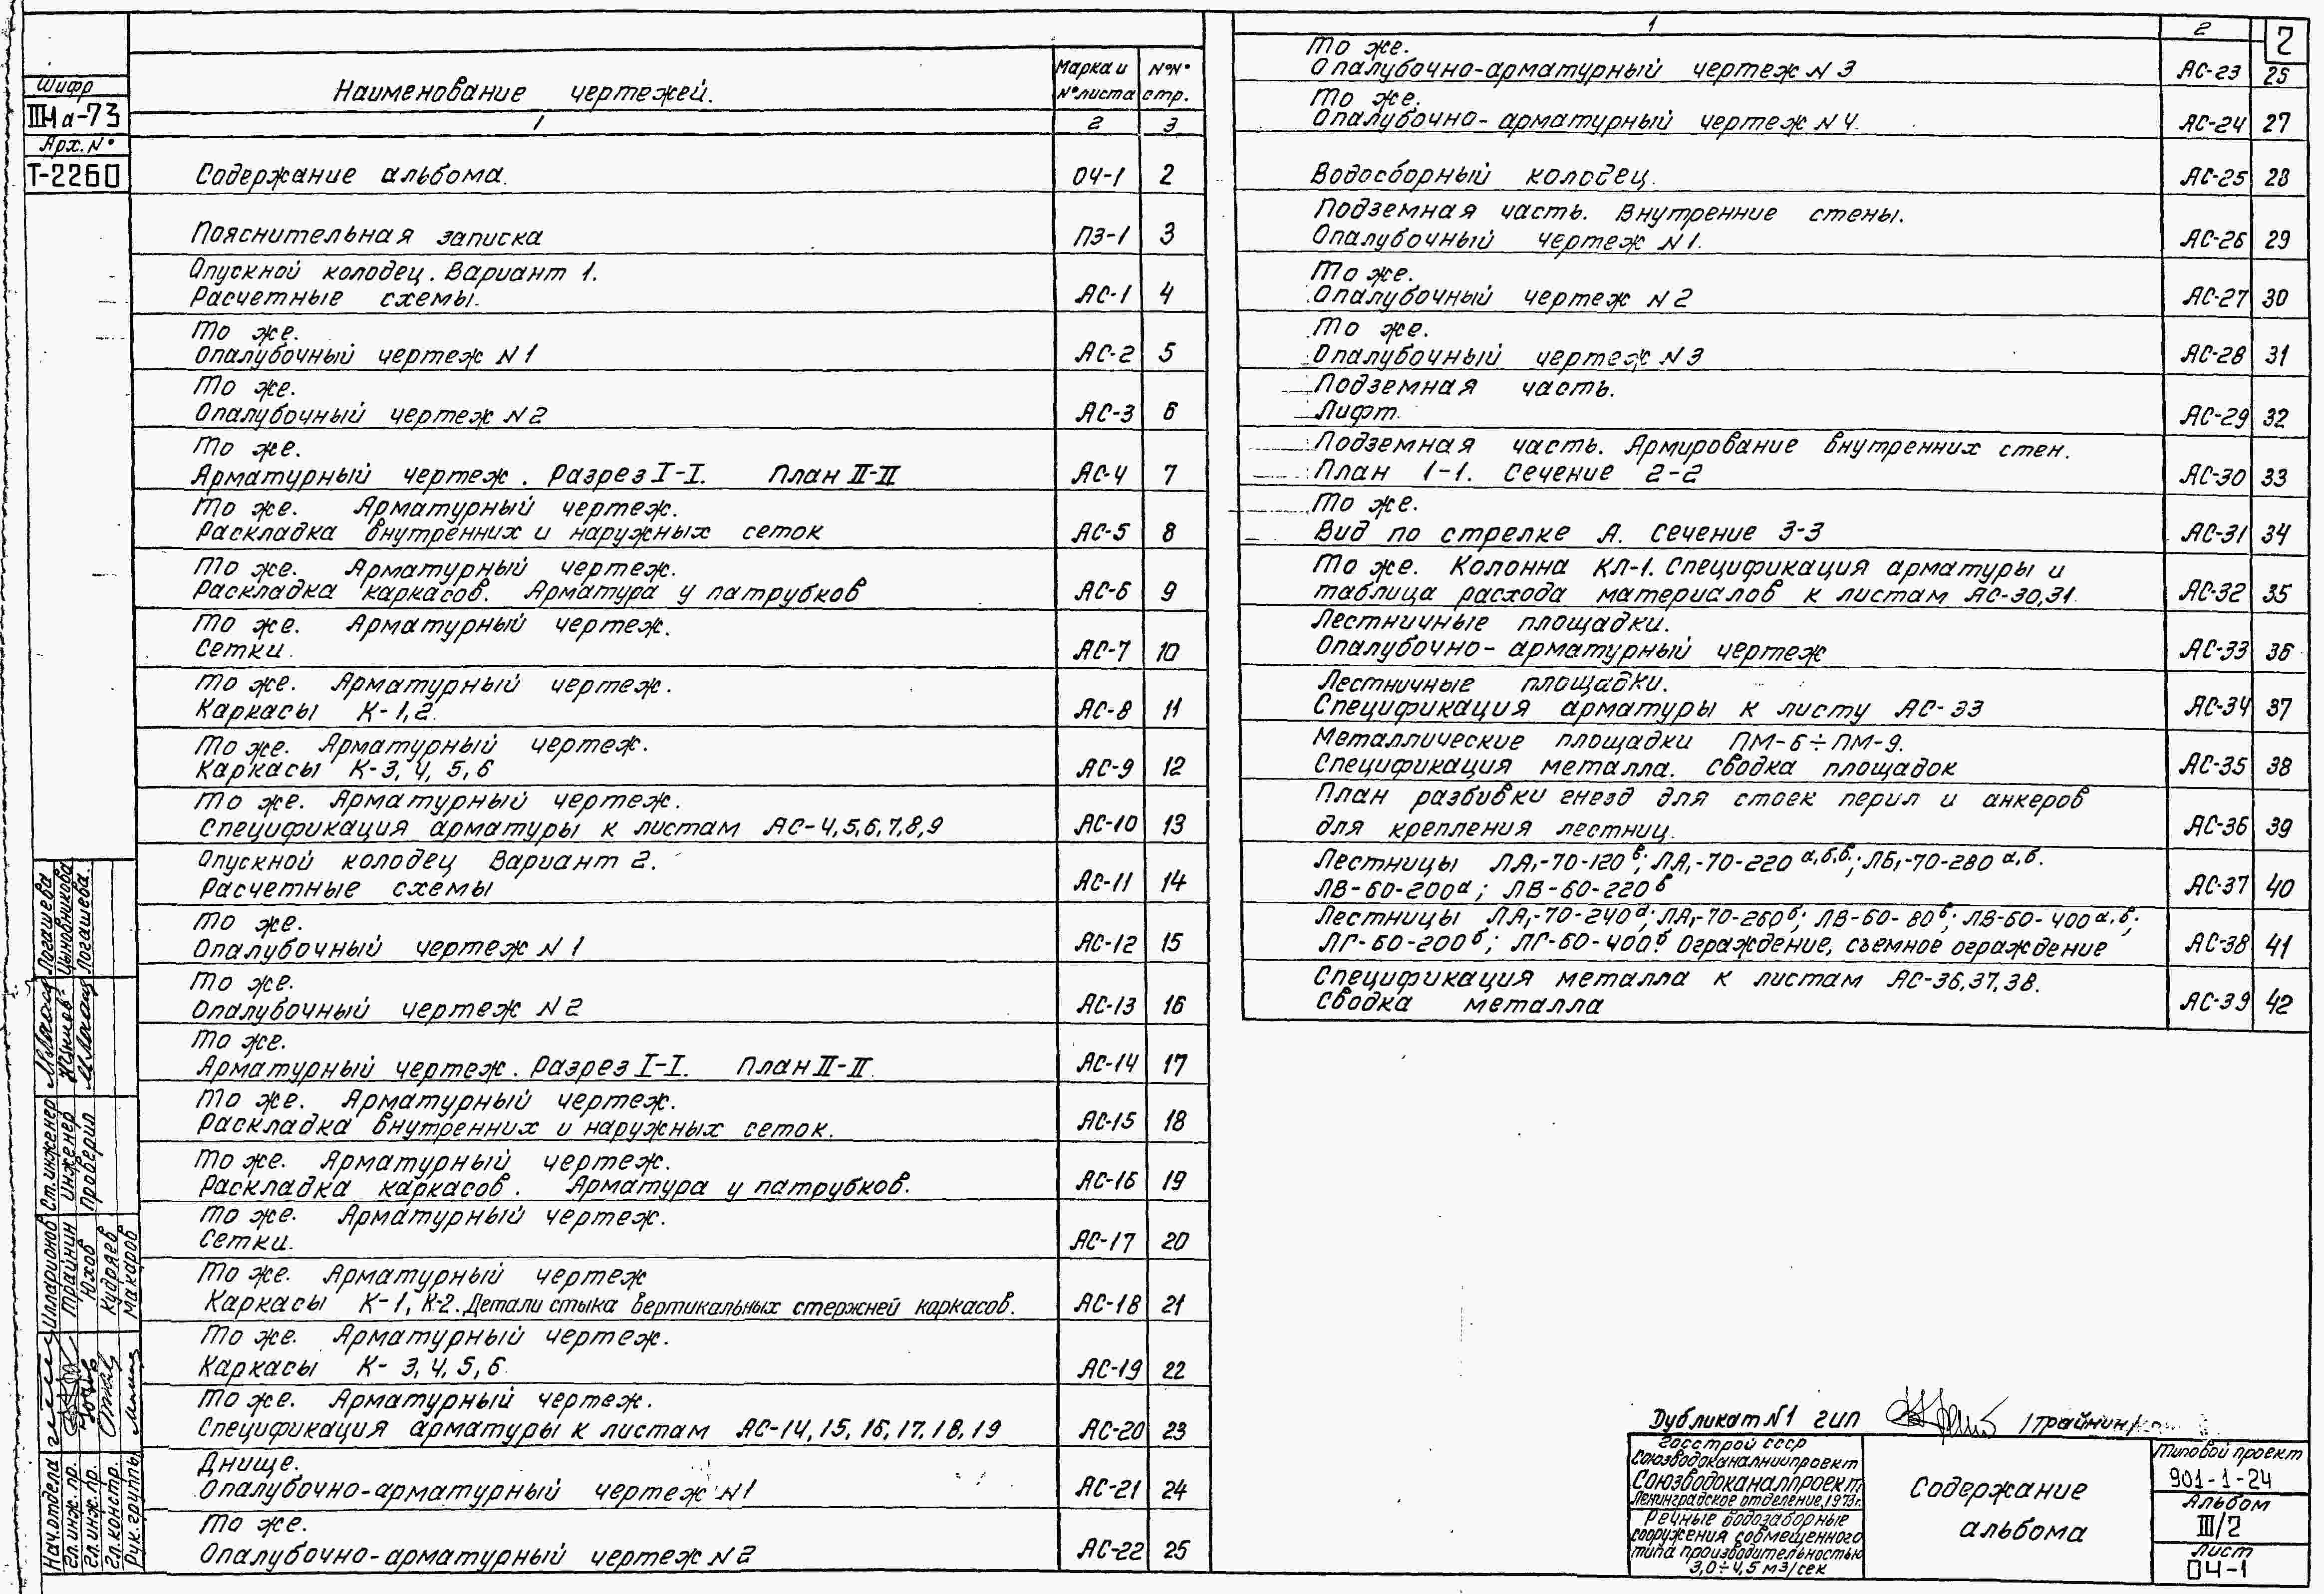 Шифр
IIIНа-73
Арх. №
Т-2260
Наименование чертежей.
Марка и № листа
№№ стр.
1 2 3
Содержание альбома. ОЧ-1 2
Пояснительная записка ПЗ-1 3
Опускной колодец. Вариант 1.
Расчетные схемы. АС-1 4
То же.
Опалубочный чертеж N1 АС-2 5
То же.
Опалубочный чертеж N2 АС-3 6
То же.
Арматурный чертеж. Разрез I-I. План II-II АС-4 7
То же. Арматурный чертеж.
Раскладка внутренних и наружных сеток АС-5 8
То же. Арматурный чертеж.
Раскладка каркасов. Арматура у патрубков АС-6 9
То же. Арматурный чертеж.
Сетки. АС-7 10
То же. Арматурный чертеж.
Каркасы К-1,2. АС-8 11
То же. Арматурный чертеж.
Каркасы К-3, 4, 5, 6 АС-9 12
То же. Арматурный чертеж.
Спецификация арматуры к листам АС-4,5,6,7,8,9 АС-10 13
Опускной колодец Вариант 2.
Расчетные схемы АС-11 14
То же.
Опалубочный чертеж N1 АС-12 15
То же.
Опалубочный чертеж N2 АС-13 16
То же.
Арматурный чертеж. Разрез I-I. План II-II. АС-14 17
То же. Арматурный чертеж.
Раскладка внутренних и наружных сеток. АС-15 18
То же. Арматурный чертеж.
Раскладка каркасов. Арматура у патрубков. АС-16 19
То же. Арматурный чертеж.
Сетки. АС-17 20
То же. Арматурный чертеж
Каркасы К-1, К-2. Детали стыка вертикальных стержней каркасов. АС-18 21
То же. Арматурный чертеж.
Каркасы К- 3, 4, 5, 6. АС-19 22
То же. Арматурный чертеж.
Спецификация арматуры к листам АС-14, 15, 16, 17, 18, 19 АС-20 23
Днище.
Опалубочно-арматурный чертеж N1 АС-21 24
То же.
Опалубочно-арматурный чертеж N2 АС-22 25
1 2 2
То же.
Опалубочно-арматурный чертеж N3 АС-23 26
То же.
Опалубочно-арматурный чертеж N4. АС-24 27
Водосборный колодец. АС-25 28
Подземная часть. Внутренние стены.
Опалубочный чертеж N1. АС-26 29
То же.
Опалубочный чертеж N2 АС-27 30
То же.
Опалубочный чертеж N3 АС-28 31
Подземная часть.
Лифт. АС-29 32
Подземная часть. Армирование внутренних стен.
План 1-1. Сечение 2-2 АС-30 33
То же.
Вид по стрелке А. Сечение 3-3 АС-31 34
То же. Колонна КЛ-1. Спецификация арматуры и
таблица расхода материалов к листам АС-30,31. АС-32 35
Лестничные площадки.
Опалубочно-арматурный чертеж АС-33 36
Лестничные площадки.
Спецификация арматуры к листу АС-33 АС-34 37
Металлические площадки ПМ-6÷ПМ-9.
Спецификация металла. Сводка площадок АС-35 38
План разбивки гнезд для стоек перил и анкеров
для крепления лестниц. АС-36 39
Лестницы ЛА₁-70-120ᵛ; ЛА₁-70-220 а,б,в.; ЛБ₁-70-280 а,б.
ЛВ-60-200а; ЛВ-60-220б АС-37 40
Лестницы ЛА₁-70-240а; ЛА₁-70-260б; ЛВ-60-80в; ЛВ-60-400а,в;
ЛГ-60-200б; ЛГ-60-400б Ограждение, съемное ограждение АС-38 41
Спецификация металла к листам АС-36,37,38.
Сводка металла АС-39 42
Логашева
Цыновникова
Логашева.
Ст. инженер
Инженер
Проверил
Илларионов
Трайнин
Юхов
Кудряев
Макаров
Нач. отдела
Гл. инж. пр.
Гл. инж. пр.
Гл. констр.
Рук. группы
Дубликат N1 ГИП /Трайнин/
Госстрой СССР
Союзводоканалниипроект
Союзводоканалпроект
Ленинградское отделение, 1973г.
Речные водозаборные
сооружения совмещенного
типа производительностью
3,0÷4,5 м3/сек
Содержание
альбома
Типовой проект
901-1-24
Альбом
III/2
Лист
ОЧ-1